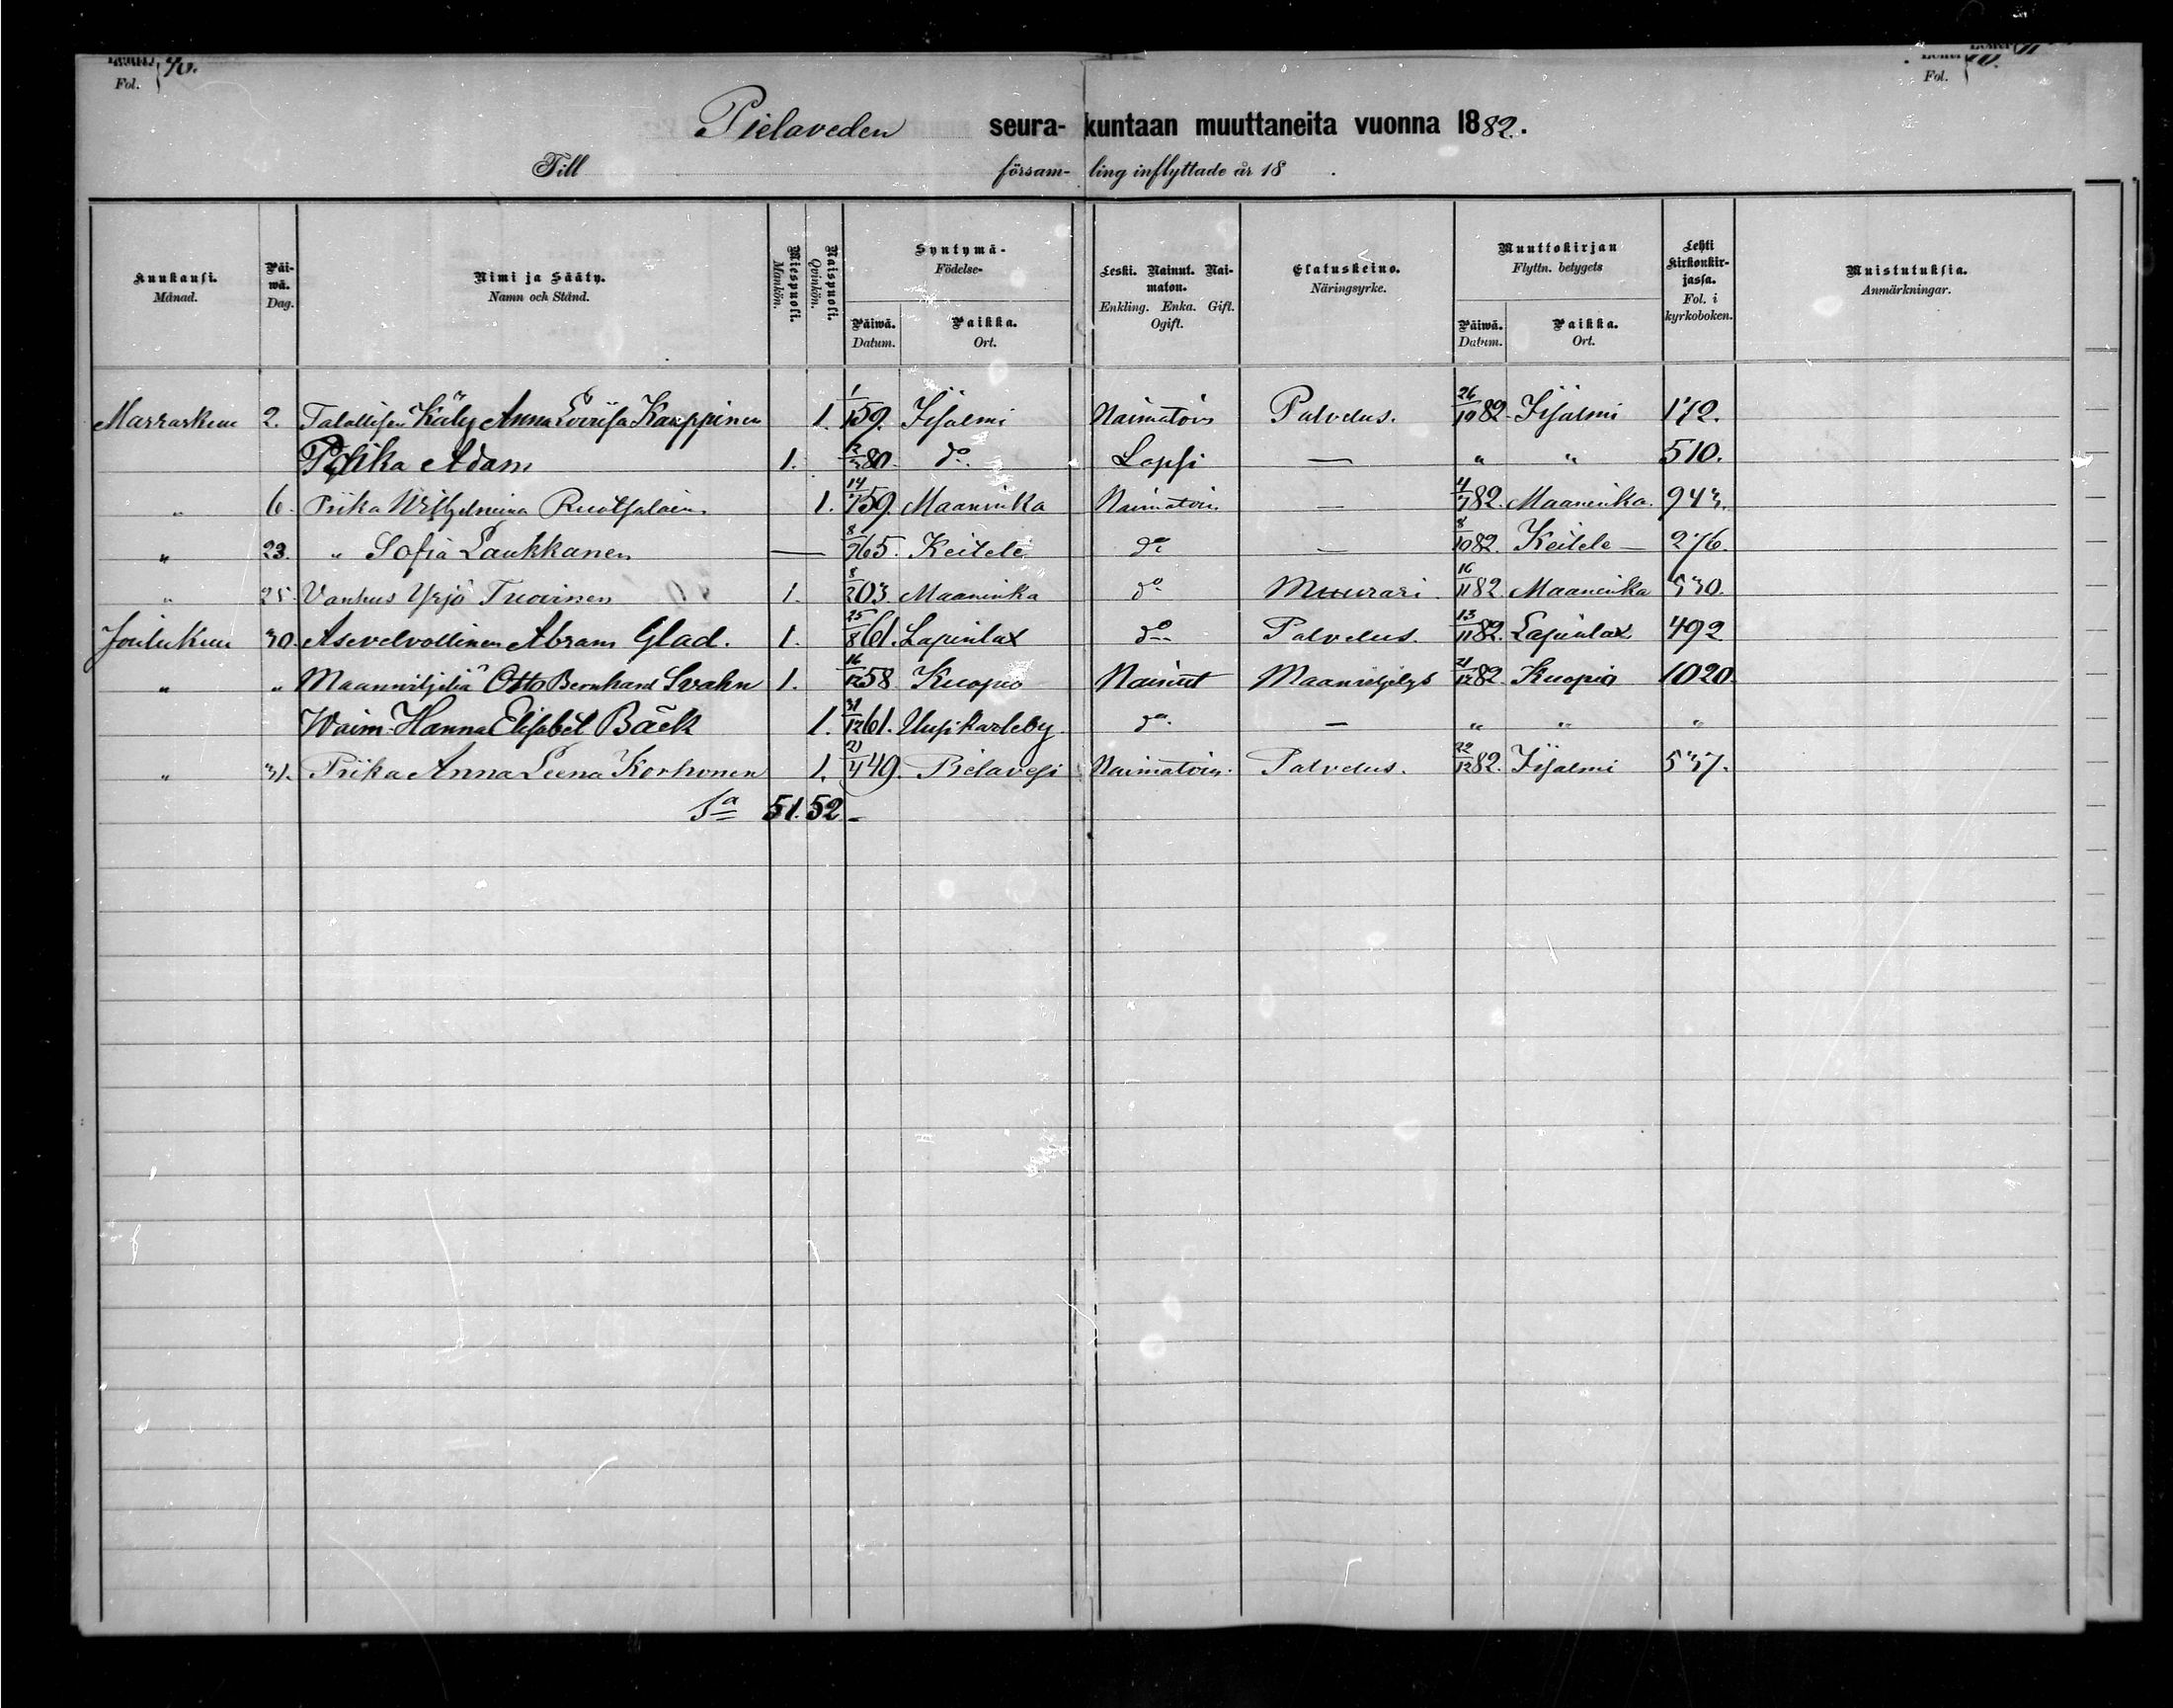 Fol. 70.
Fol. 70.
Pielaveden seura- kuntaan muuttaneita vuonna 1882.
Till försam- ling inflyttade år 18 .
Kuukausi. Månad.
Päiwä. Dag.
Nimi ja Sääty. Namn och Stånd.
Miespuoli. Mankön.
Naispuoli. Qvinkön.
Syntymä- Födelse-
Päiwä. Datum.
Paikka. Ort.
Leski. Nainut. Naimaton. Enkling. Enka. Gift. Ogift.
Elatuskeino. Näringsyrke.
Muuttokirjan Flyttn. betygets
Päiwä. Datum.
Paikka. Ort.
Lehti kirkonkirjassa. Fol. i kyrkoboken.
Muistutuksia. Anmärkningar.
Marraskuu 2. Talollisen Käly Anna Loviisa Kauppinen 1. 59. Iisalmi Naimatoin Palvelus. 26/10 82. Iisalmi 172.
Poika Adam 1. 80. do. Lapsi — " " 510.
" 6. Piika Wilhelmina Ruotsalain. 1. 14/7 59. Maaninka Naimatoin — 4/7 82. Maaninka. 943.
" 23. " Sofia Laukkanen — 8/7 65. Keitele do — 8/10 82. Keitele — 276.
" 25. Vanhus Yrjö Tuovinen 1. 8/2 03. Maaninka do Muurari. 16/11 82. Maaninka 530.
Joulukuu 30. Asevelvollinen Abram Glad. 1. 25/8 61. Lapinlax do Palvelus. 13/11 82. Lapinlax 492
" " Maanviljeliä Otto Bernhard Svahn 1. 16/12 58 Kuopio Nainut Maanviljelys 21/12 82. Kuopio 1020.
Waim. Hanna Elisabet Bäck 1. 31/12 61. Uusikarleby do. — " " "
" 31. Piika Anna Leena Korhonen 1. 21/4 49. Pielavesi Naimatoin. Palvelus. 22/12 82. Iisalmi 537.
Sa 51. 52. –